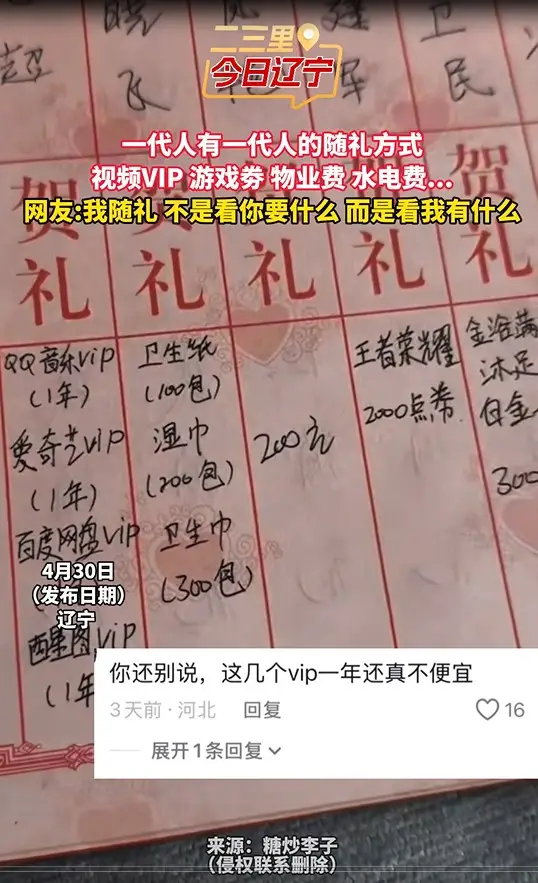 二三里
今日辽宁
一代人有一代人的随礼方式
视频VIP 游戏券 物业费 水电费...
网友:我随礼 不是看你要什么 而是看我有什么
超
晓
飞
军
卫
民
贺礼
贺礼
礼
礼
贺礼
QQ音乐vip
(1年)
爱奇艺vip
(1年)
百度网盘vip
醒图vip
(1年
卫生纸
(100包)
湿巾
(200包)
卫生巾
(300包)
200元
王者荣耀
2000点券
金浴满
沐足
白金
300
4月30日
(发布日期)
辽宁
你还别说，这几个vip一年还真不便宜
3天前·河北 回复
16
展开1条回复
来源：糖炒李子
(侵权联系删除)